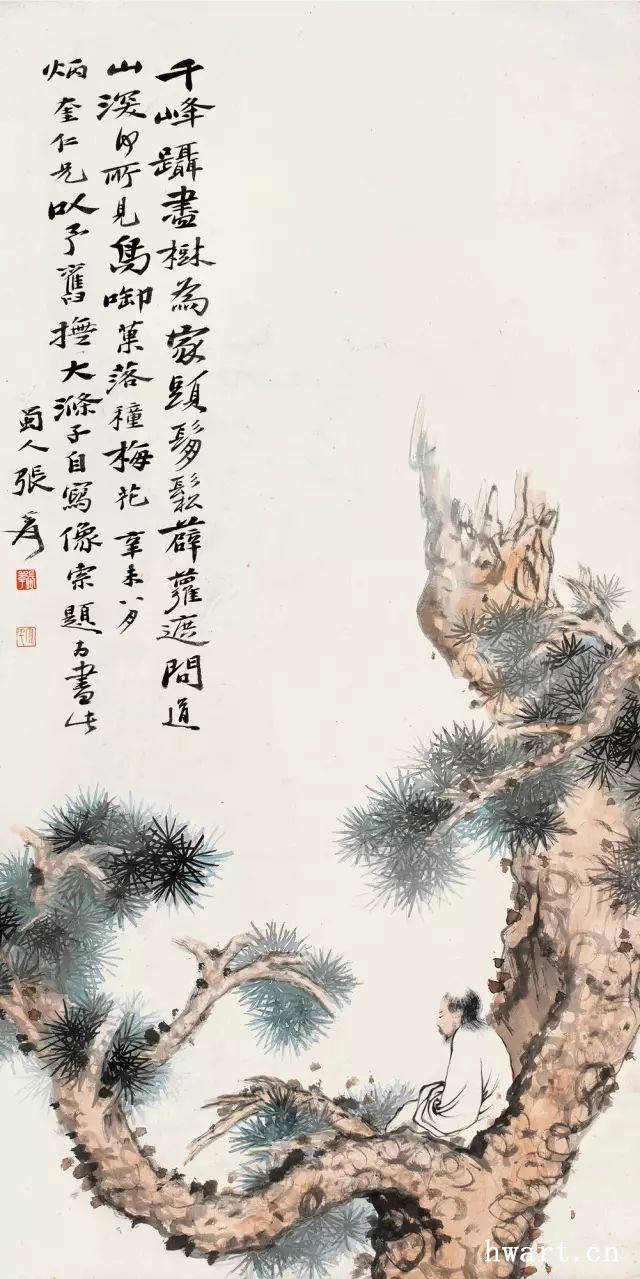 千峰躡盡樹為家頭鬅鬆薜蘿遮問道
山深何所見鳥啣菓落種梅花 辛未八月
炳奎仁兄以予舊撫大滌子自寫像索題為畫此
蜀人張爰
hwart.cn